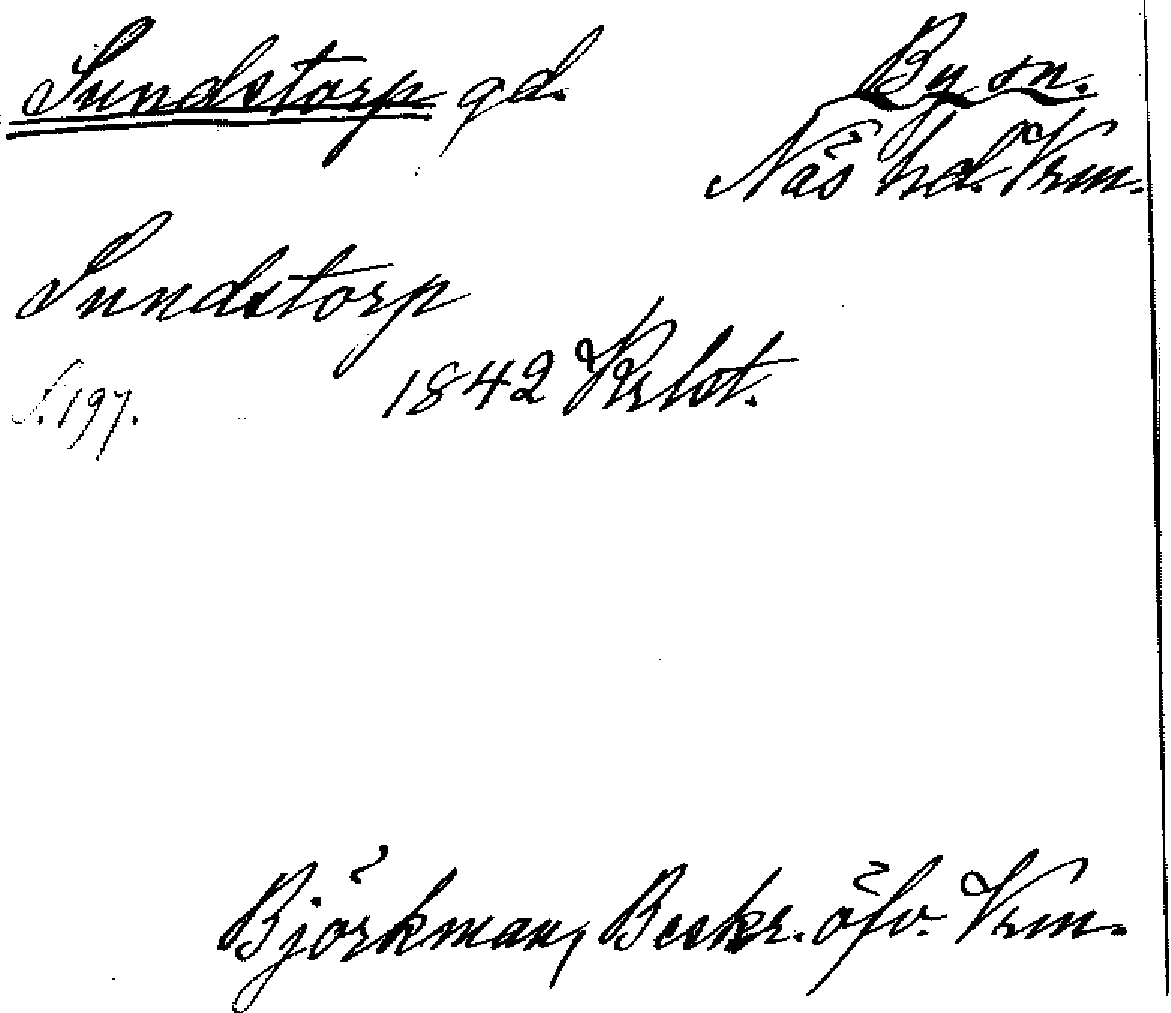 Sundstorp gd. By sn.
Näs hd. Vrm.
Sundstorp
1842 Krlst.
S. 197.
Björkman, Beskr. öfv. Vrm.